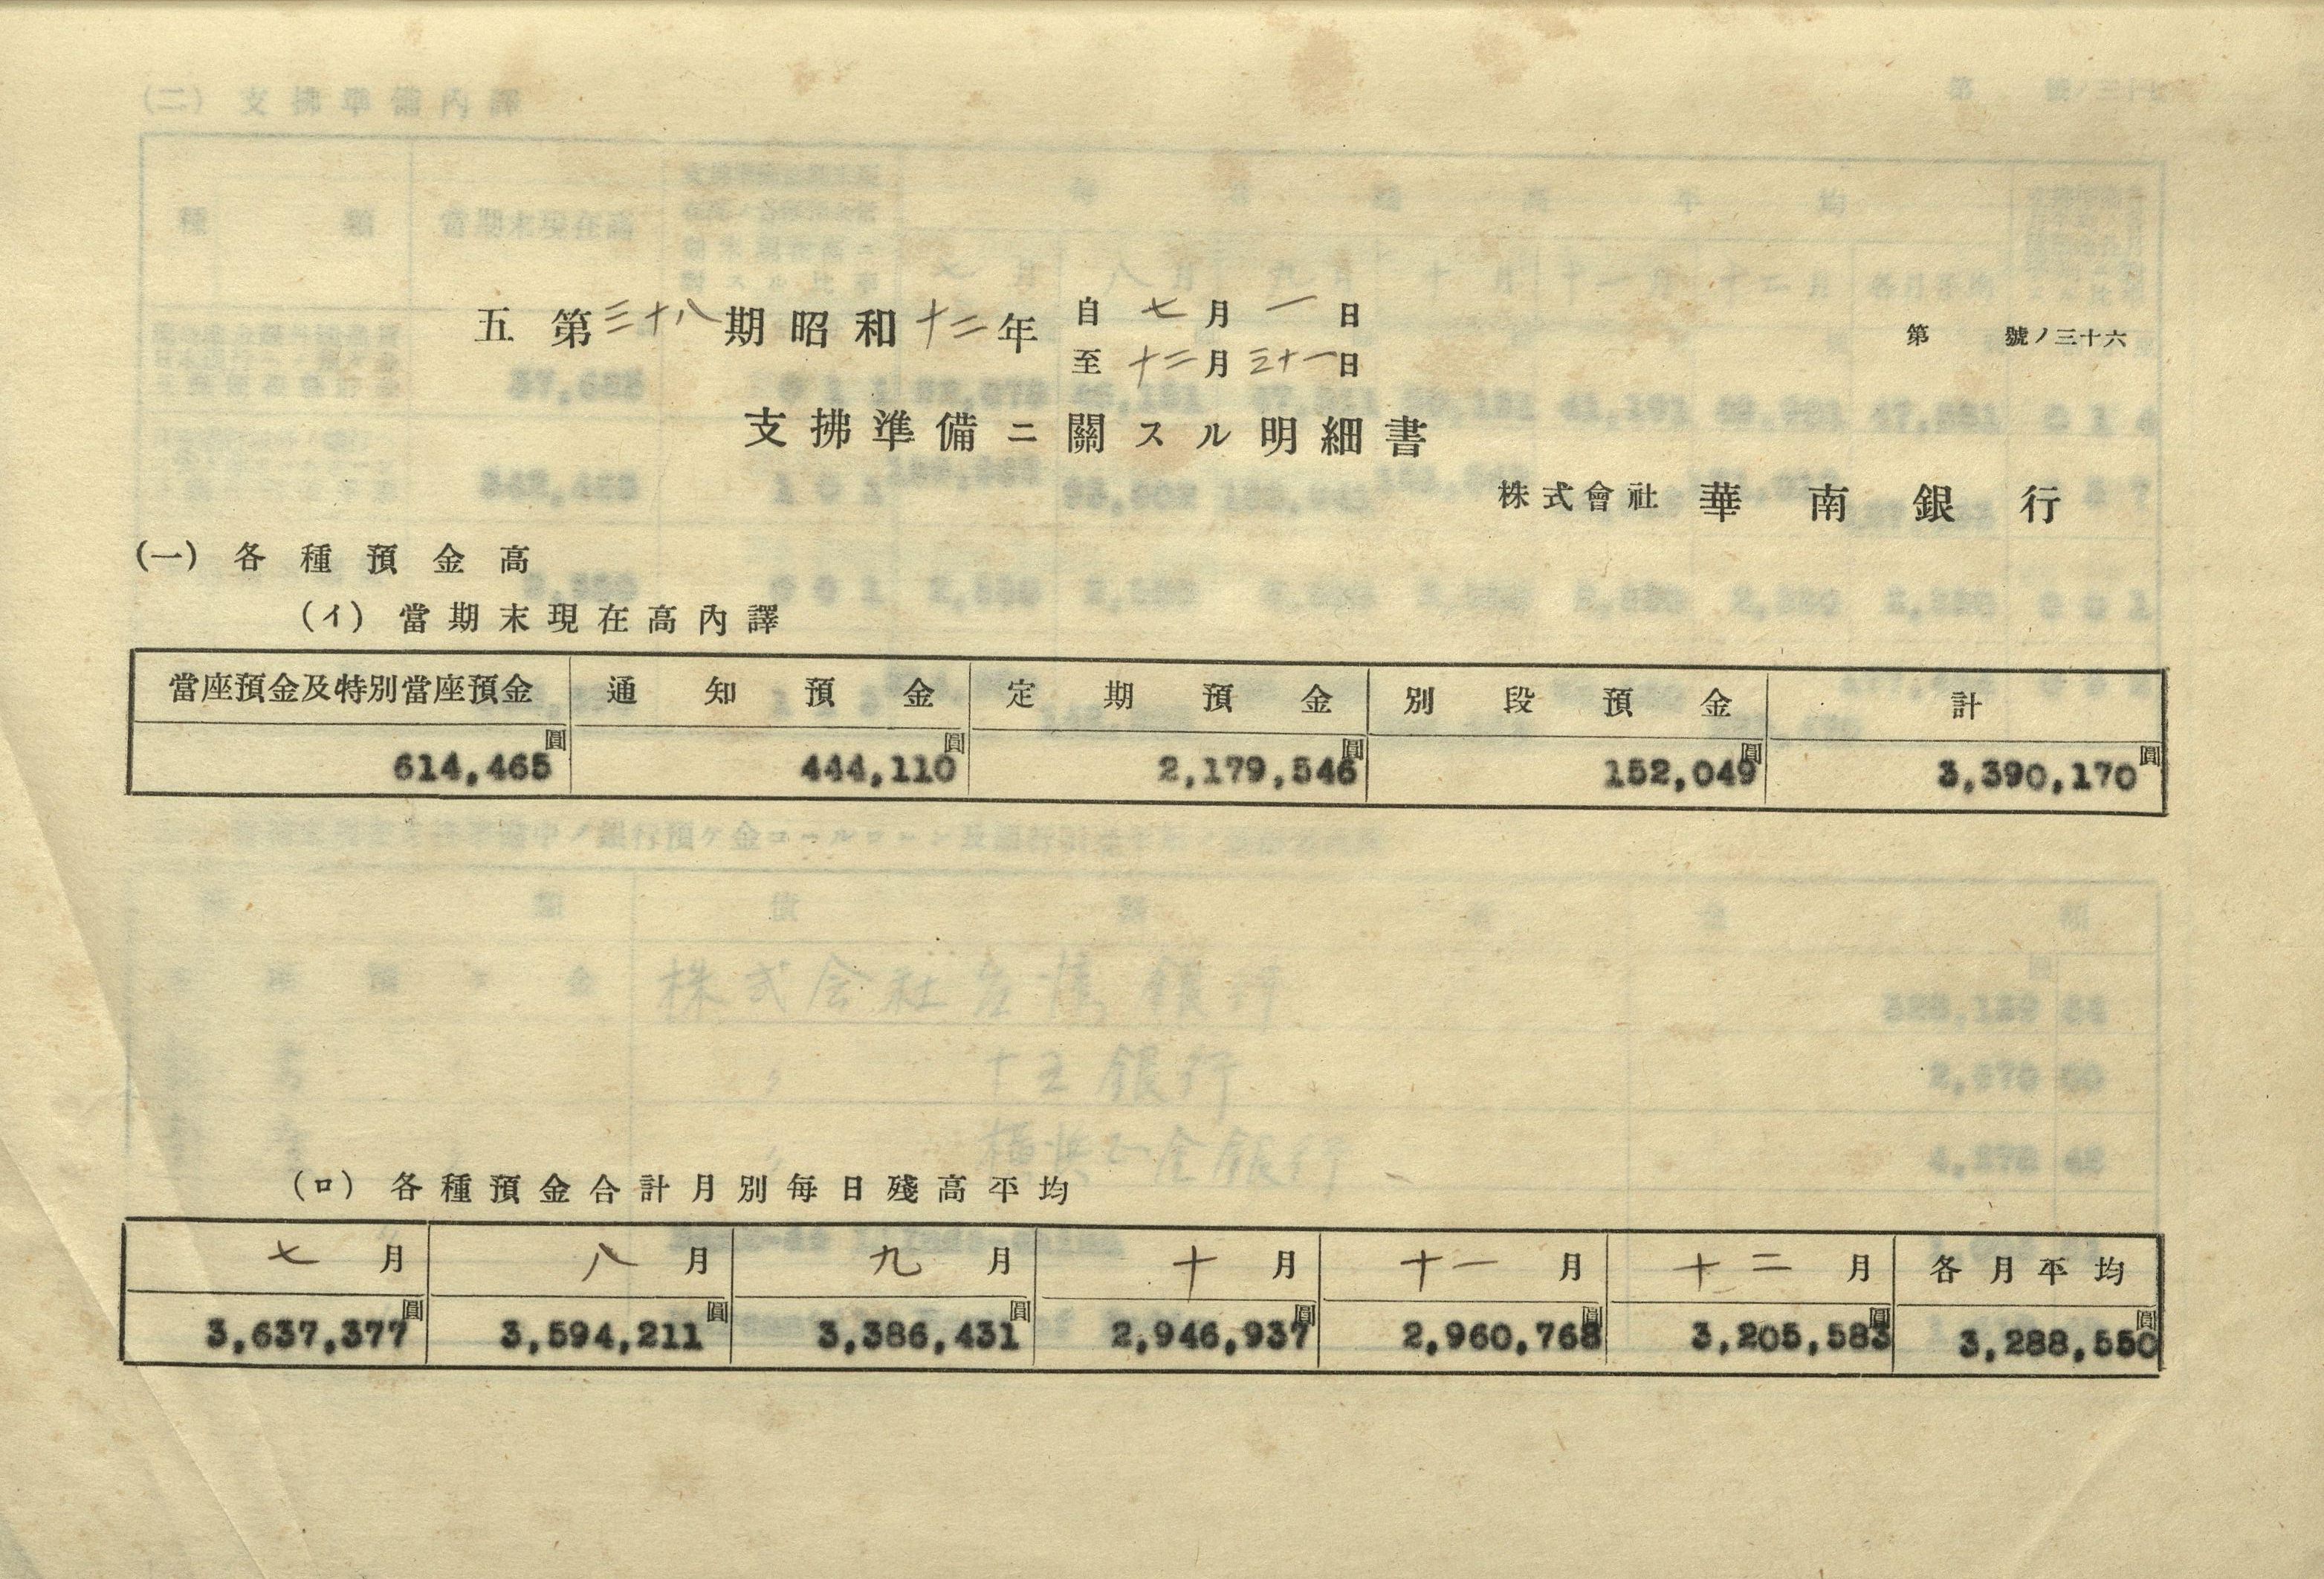 第 號ノ三十六
五 第三十八期昭和十二年 自 七月一日
至 十二月三十一日
支拂準備ニ關スル明細書
株式會社 華南銀行
(一) 各種預金高
(イ) 當期末現在高內譯
當座預金及特別當座預金 通知預金 定期預金 別段預金 計
圓 圓 圓 圓 圓
614,465 444,110 2,179,546 152,049 3,390,170
(ロ) 各種預金合計月別每日殘高平均
七月 八月 九月 十月 十一月 十二月 各月平均
圓 圓 圓 圓 圓 圓 圓
3,637,377 3,594,211 3,386,431 2,946,937 2,960,768 3,205,583 3,288,550